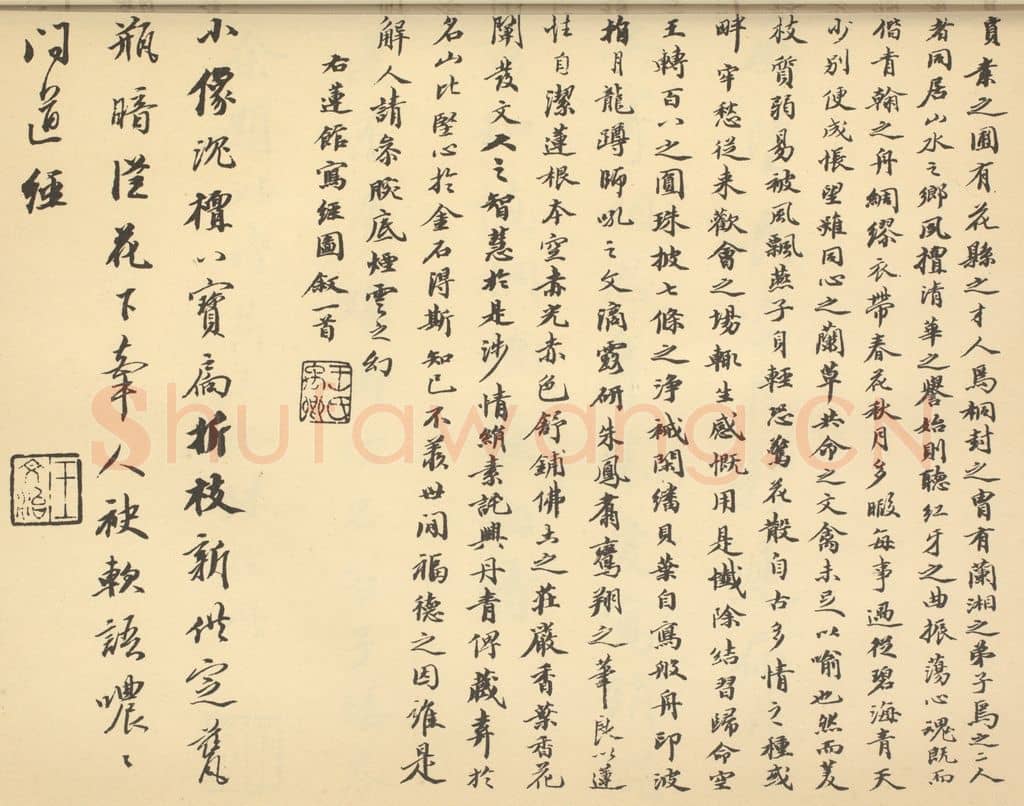 素之圃有花縣之才人焉桐封之胄有蘭湘之弟子焉之二人
者同居山水之鄉夙擅清華之譽始則聽紅牙之曲振蕩心魂既而
偕青翰之舟綢繆衣帶春花秋月多暇每事過從碧海青天
少別便成悵望雖同心之蘭草共命之文禽未足以喻也然而芰
枝質弱易被風飄燕子身輕恐驚花散自古多情之種或
畔牢愁從來歡會之場輒生感慨用是懺除結習歸命空
王轉百八之圓珠披七條之淨裓閑繙貝葉自寫般舟印波
拍月龍蹲師吼之文滴露研朱鳳翥鸞翔之筆良以蓮
性自潔蓮根本空赤光赤色舒鋪佛土之莊嚴香葉香花
闡發文人之智慧於是涉情綃素託興丹青俾藏弆於
名山比堅心於金石得斯知己不羨世間福德之因誰是
解人請參腕底煙雲之幻
右蓮館寫經圖敘一首
小像沈檀八寶折枝新供定甆
瓶暗從花下牽人袂軟語噥〻
問道經
王文治
Shufawang.CN